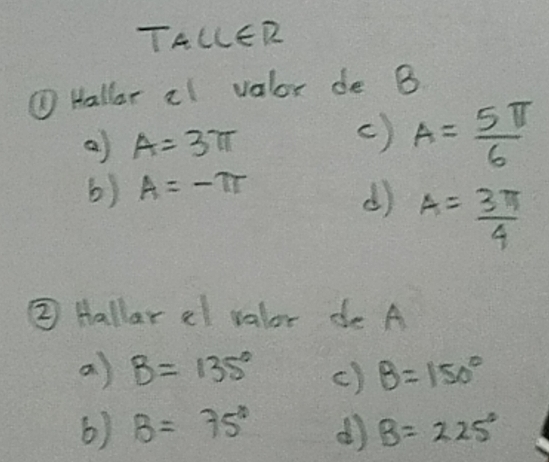 TALLER
① Hallar el valor de B
a) A = 3π
c) A = 5π/6
b) A = -π
d) A = 3π/4
② Hallar el valor de A
a) B = 135°
c) B = 150°
b) B = 75°
d) B = 225°